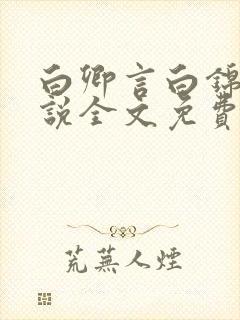 白卿言白錦
説全文免費
荒蕪人煙